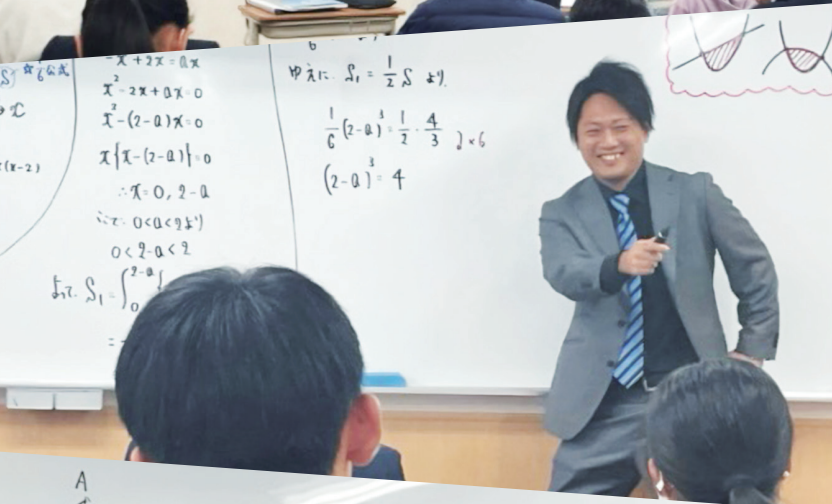 S) ☆ 1/6公式
→ x
(x-2)
-x² + 2x = ax
x² - 2x + ax = 0
x² - (2-a)x = 0
x{x-(2-a)} = 0
∴ x = 0, 2-a
ここで 0<a<2より
0 < 2-a < 2
よって S₁ = ∫₀^(2-a) {
= -
ゆえに S₁ = 1/2 S より
1/6 (2-a)³ = 1/2 · 4/3 ) ×6
(2-a)³ = 4
A